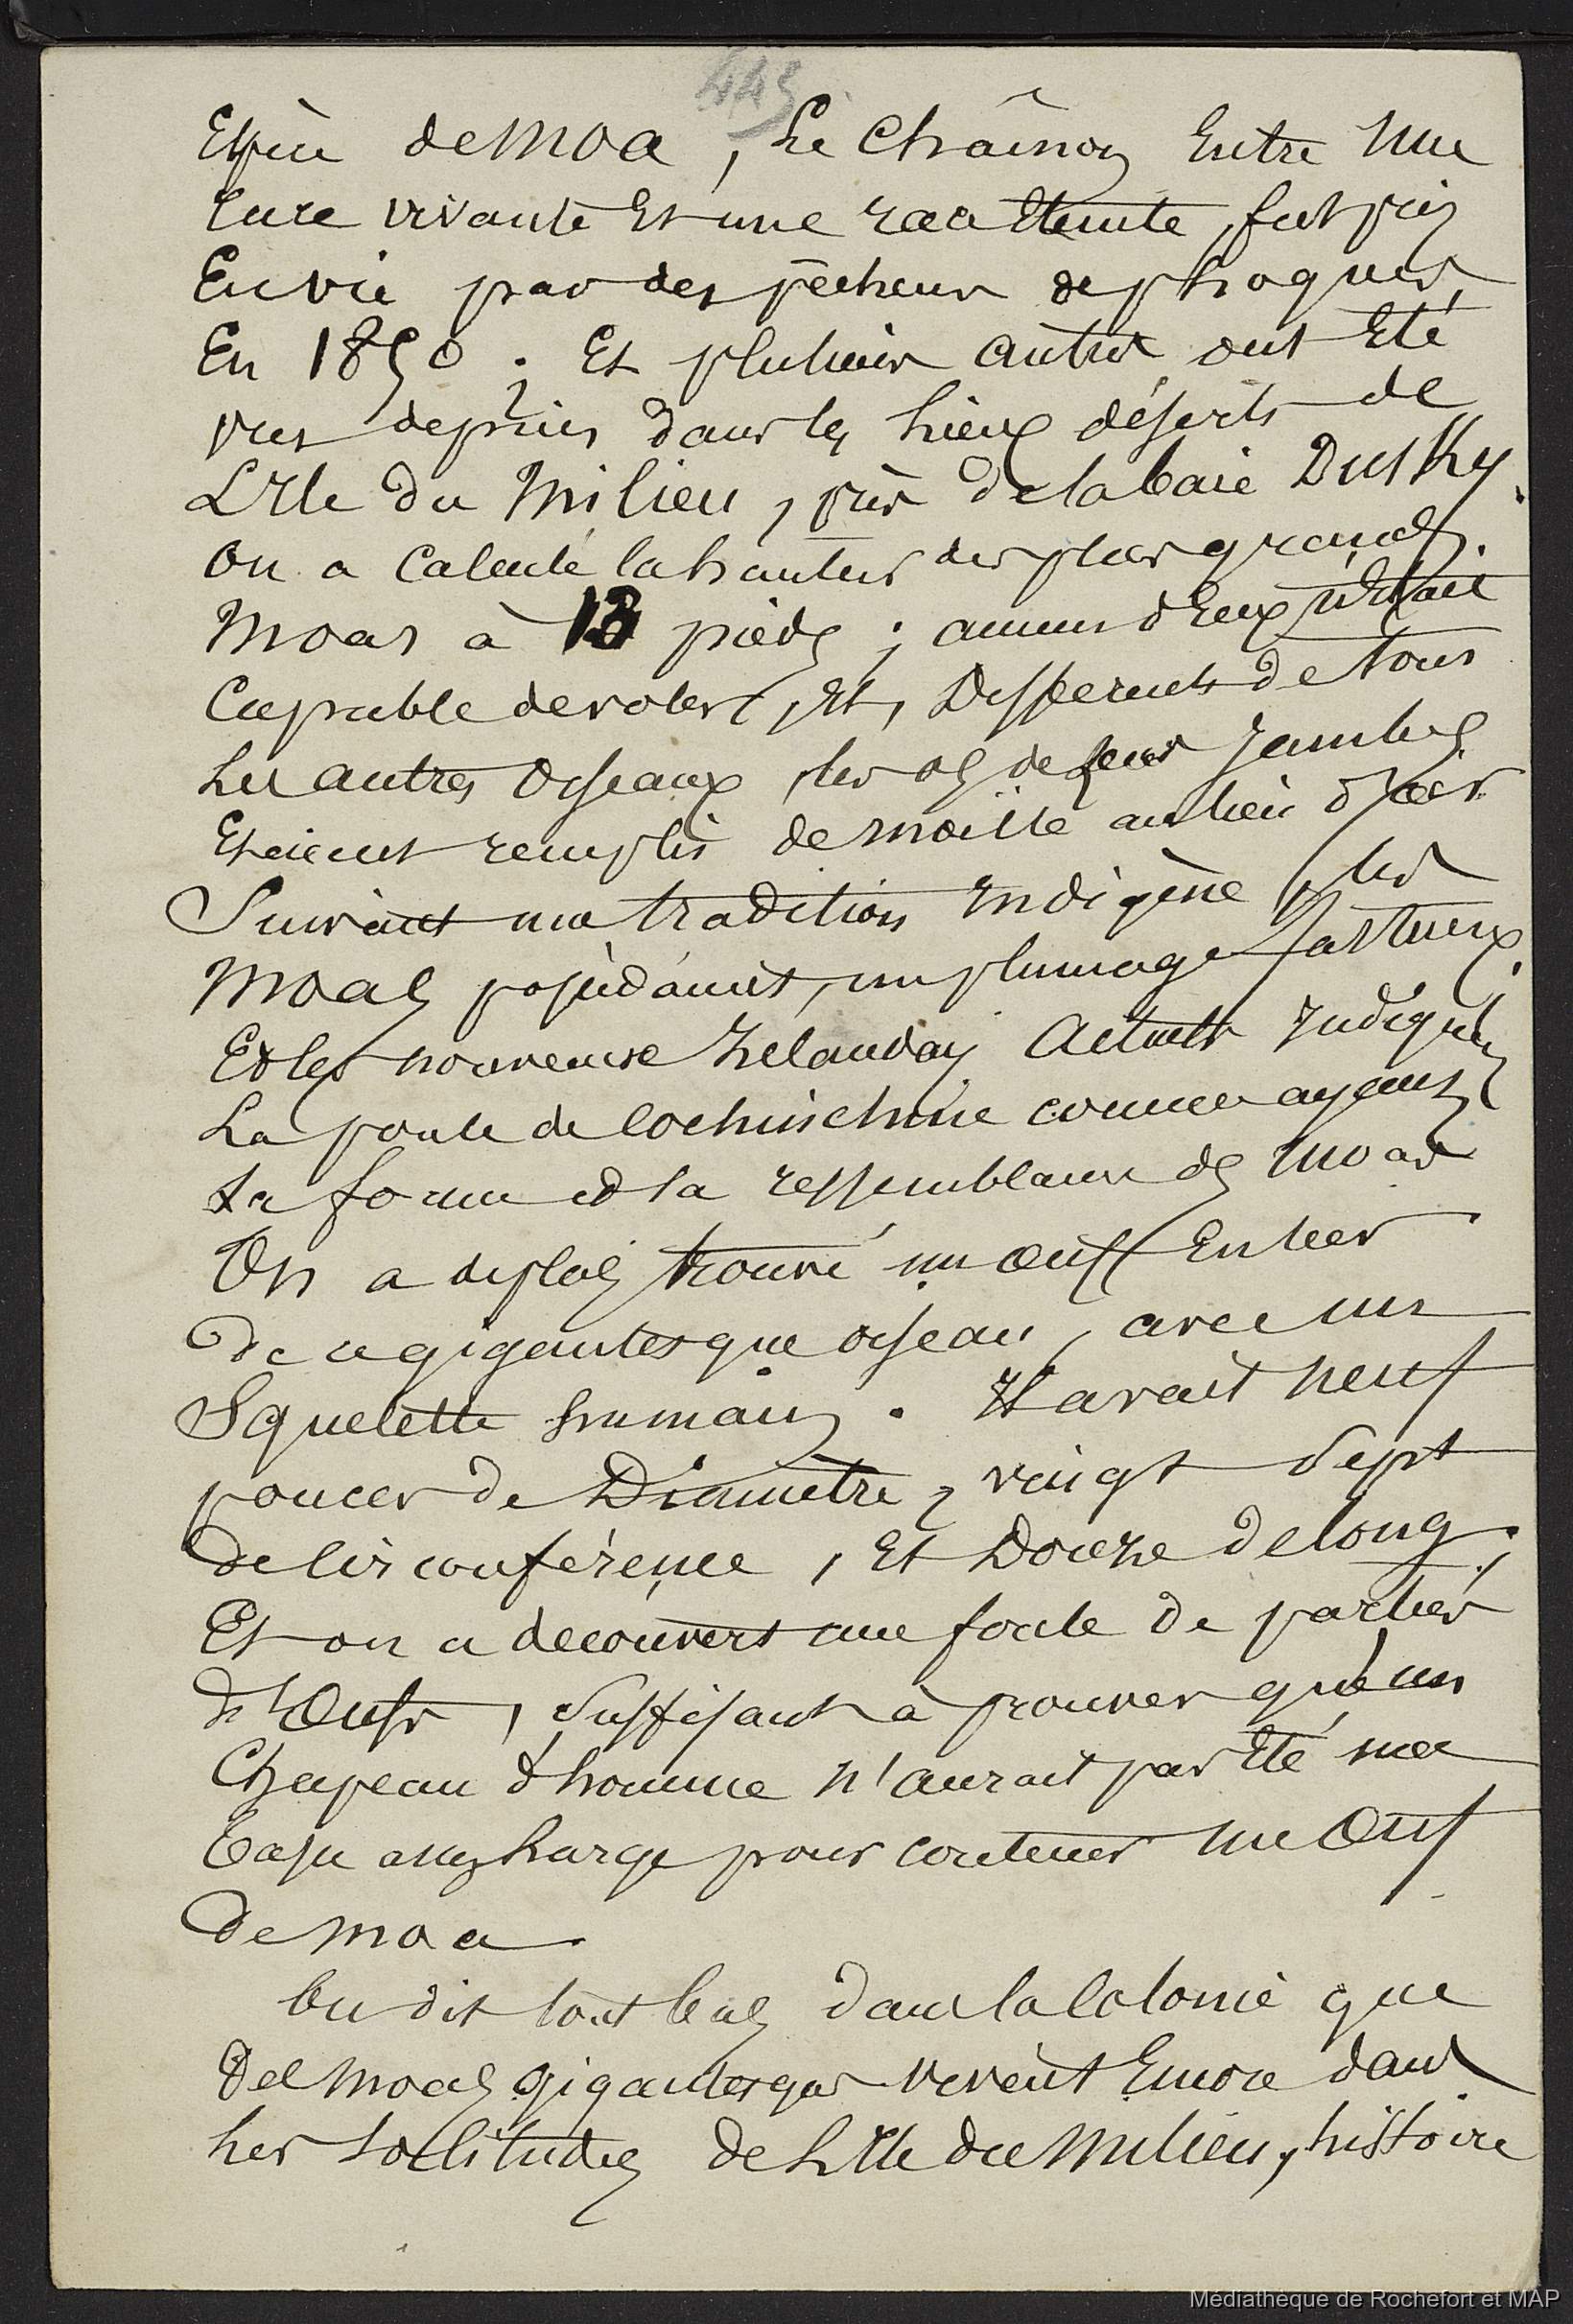 443
Espèce de moa, Le Chaînon Entre une
race vivante Et une race Eteinte, fut pris
En vie par des pêcheurs de phoques,
En 1850 ; Et plusieurs autres ont Eté
vus depuis dans les Lieux déserts de
L'Ile du Milieu, près de la baie Dusky.
On a Calculé la hauteur des plus grands
Moas à 13 pieds ; aucun d'Eux n'était
Capable de voler, Et, Differents de tous
Les autres Oiseaux, les os de leurs Jambes
Etaient remplis de moëlle au lieu d'air
Suivant une tradition Indigène, les
Moas possédaient, un plumage fastueux,
Et les nouveaux Zelandais Actuels Indiquent
La poule de Cochinchine comme ayant
La forme et la ressemblance des moas
On a de plus trouvé un œuf Entier
De ce gigantesque oiseau, avec un
Squelette humain. Il avait neuf
pouces de Diamètre, vingt Sept
de Circonférence, Et Douze de long ;
Et on a decouvert une foule de parties
d'Œufs, Suffisants à prouver qu'un
Chapeau d'homme n'aurait pas Eté une
tasse assez Large pour contenir un Œuf
De moa.
On dit tout bas dans la Colonie que
Des moas gigantesques vivent Encore dans
Les Sollitudes de L'Ile du Milieu, histoire
Médiathèque de Rochefort et MAP